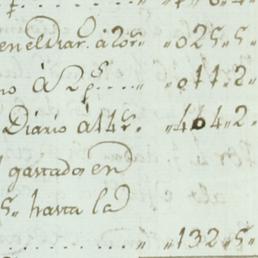 en el Diar. à 20r.. „025„5„
no à 2p.s.... „011„2„
Diario à 14r. „464„2„
gastado en
5„ hasta la
.......... „ „132„5„